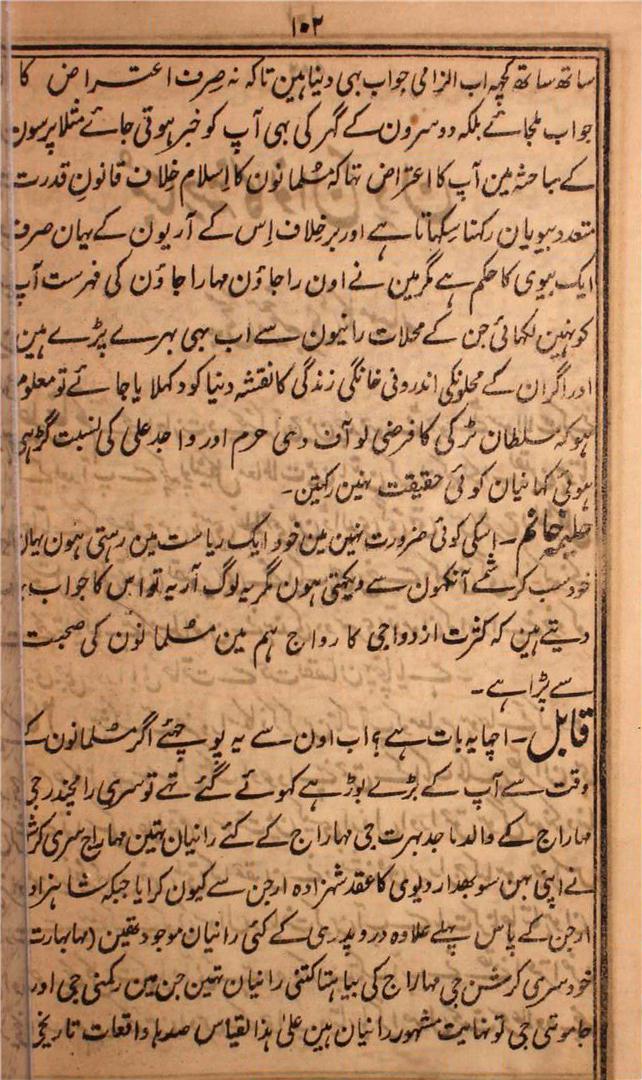 ۱۰۲
ساتھ ساتھ کچہہ اب الزامی جواب بہی دینا ہین تاکہ نہ صرف اعتراض کا
جواب ملجائے بلکہ دوسرون کے گہر کی بہی آپ کو خبر ہوتی جائے مثلا پرسون
کے مباحثہ مین آپ کا اعتراض تہا کہ مسلمانون کا اسلام خلاف قانون قدرت
متعدد بیویان رکہنا سکہاتا ہے اور برخلاف اس کے آریون کے یہان صرف
ایک بیوی کا حکم ہے مگر مین نے اون راجاؤن مہاراجاؤن کی فہرست آپ
کو نہین لکہائی جن کے محلات رانیون سے اب بہی بہرے پڑے ہین
اور اگر ان کے محلونکی اندرونی خانگی زندگی کا نقشہ دنیا کو دکہلایا جائے تو معلوم
ہو کہ سلطان ٹرکی کا فرضی لو آف دی حرم اور واجد علی کی نسبت گڑہی
ہوئی کہانیان کوئی حقیقت نہین رکہتین۔
خانم۔ اسکی کوئی ضرورت نہین مین خود ایک ریاست مین رہتی ہون یہان
خود سب کرشمے آنکہون سے دیکہتی ہون مگر یہ لوگ آریہ تو اس کا جواب یہ
دیتے ہین کہ کثرت ازدواجی کا رواج ہم مین مسلمانون کی صحبت
سے پڑا ہے۔
قابل۔ اچہا یہ بات ہے؟ اب اون سے یہ پوچہئے اگر مسلمانون کے
وقت سے آپ کے بڑے بوڑہے کہوئے گئے تہے تو سری رامچندر جی
مہاراج کے والد ماجد بہرت جی مہاراج کے کئے رانیان تہین مہاراج سری کرشن
نے اپنی بہن سوبہدار دیوی کا عقد شہزادہ ارجن سے کیون کرایا جبکہ شاہزادہ
ارجن کے پاس پہلے علاوہ دروپدری کے کئی رانیان موجود تہین (مہابہارت
خود سری کرشن جی مہاراج کی بیاہتا کتنی رانیان تہین جن مین رکمنی جی اور
جامونتی جی تو نہایت مشہور رانیان ہین علیٰ ہذا القیاس صدہا واقعات تاریخی